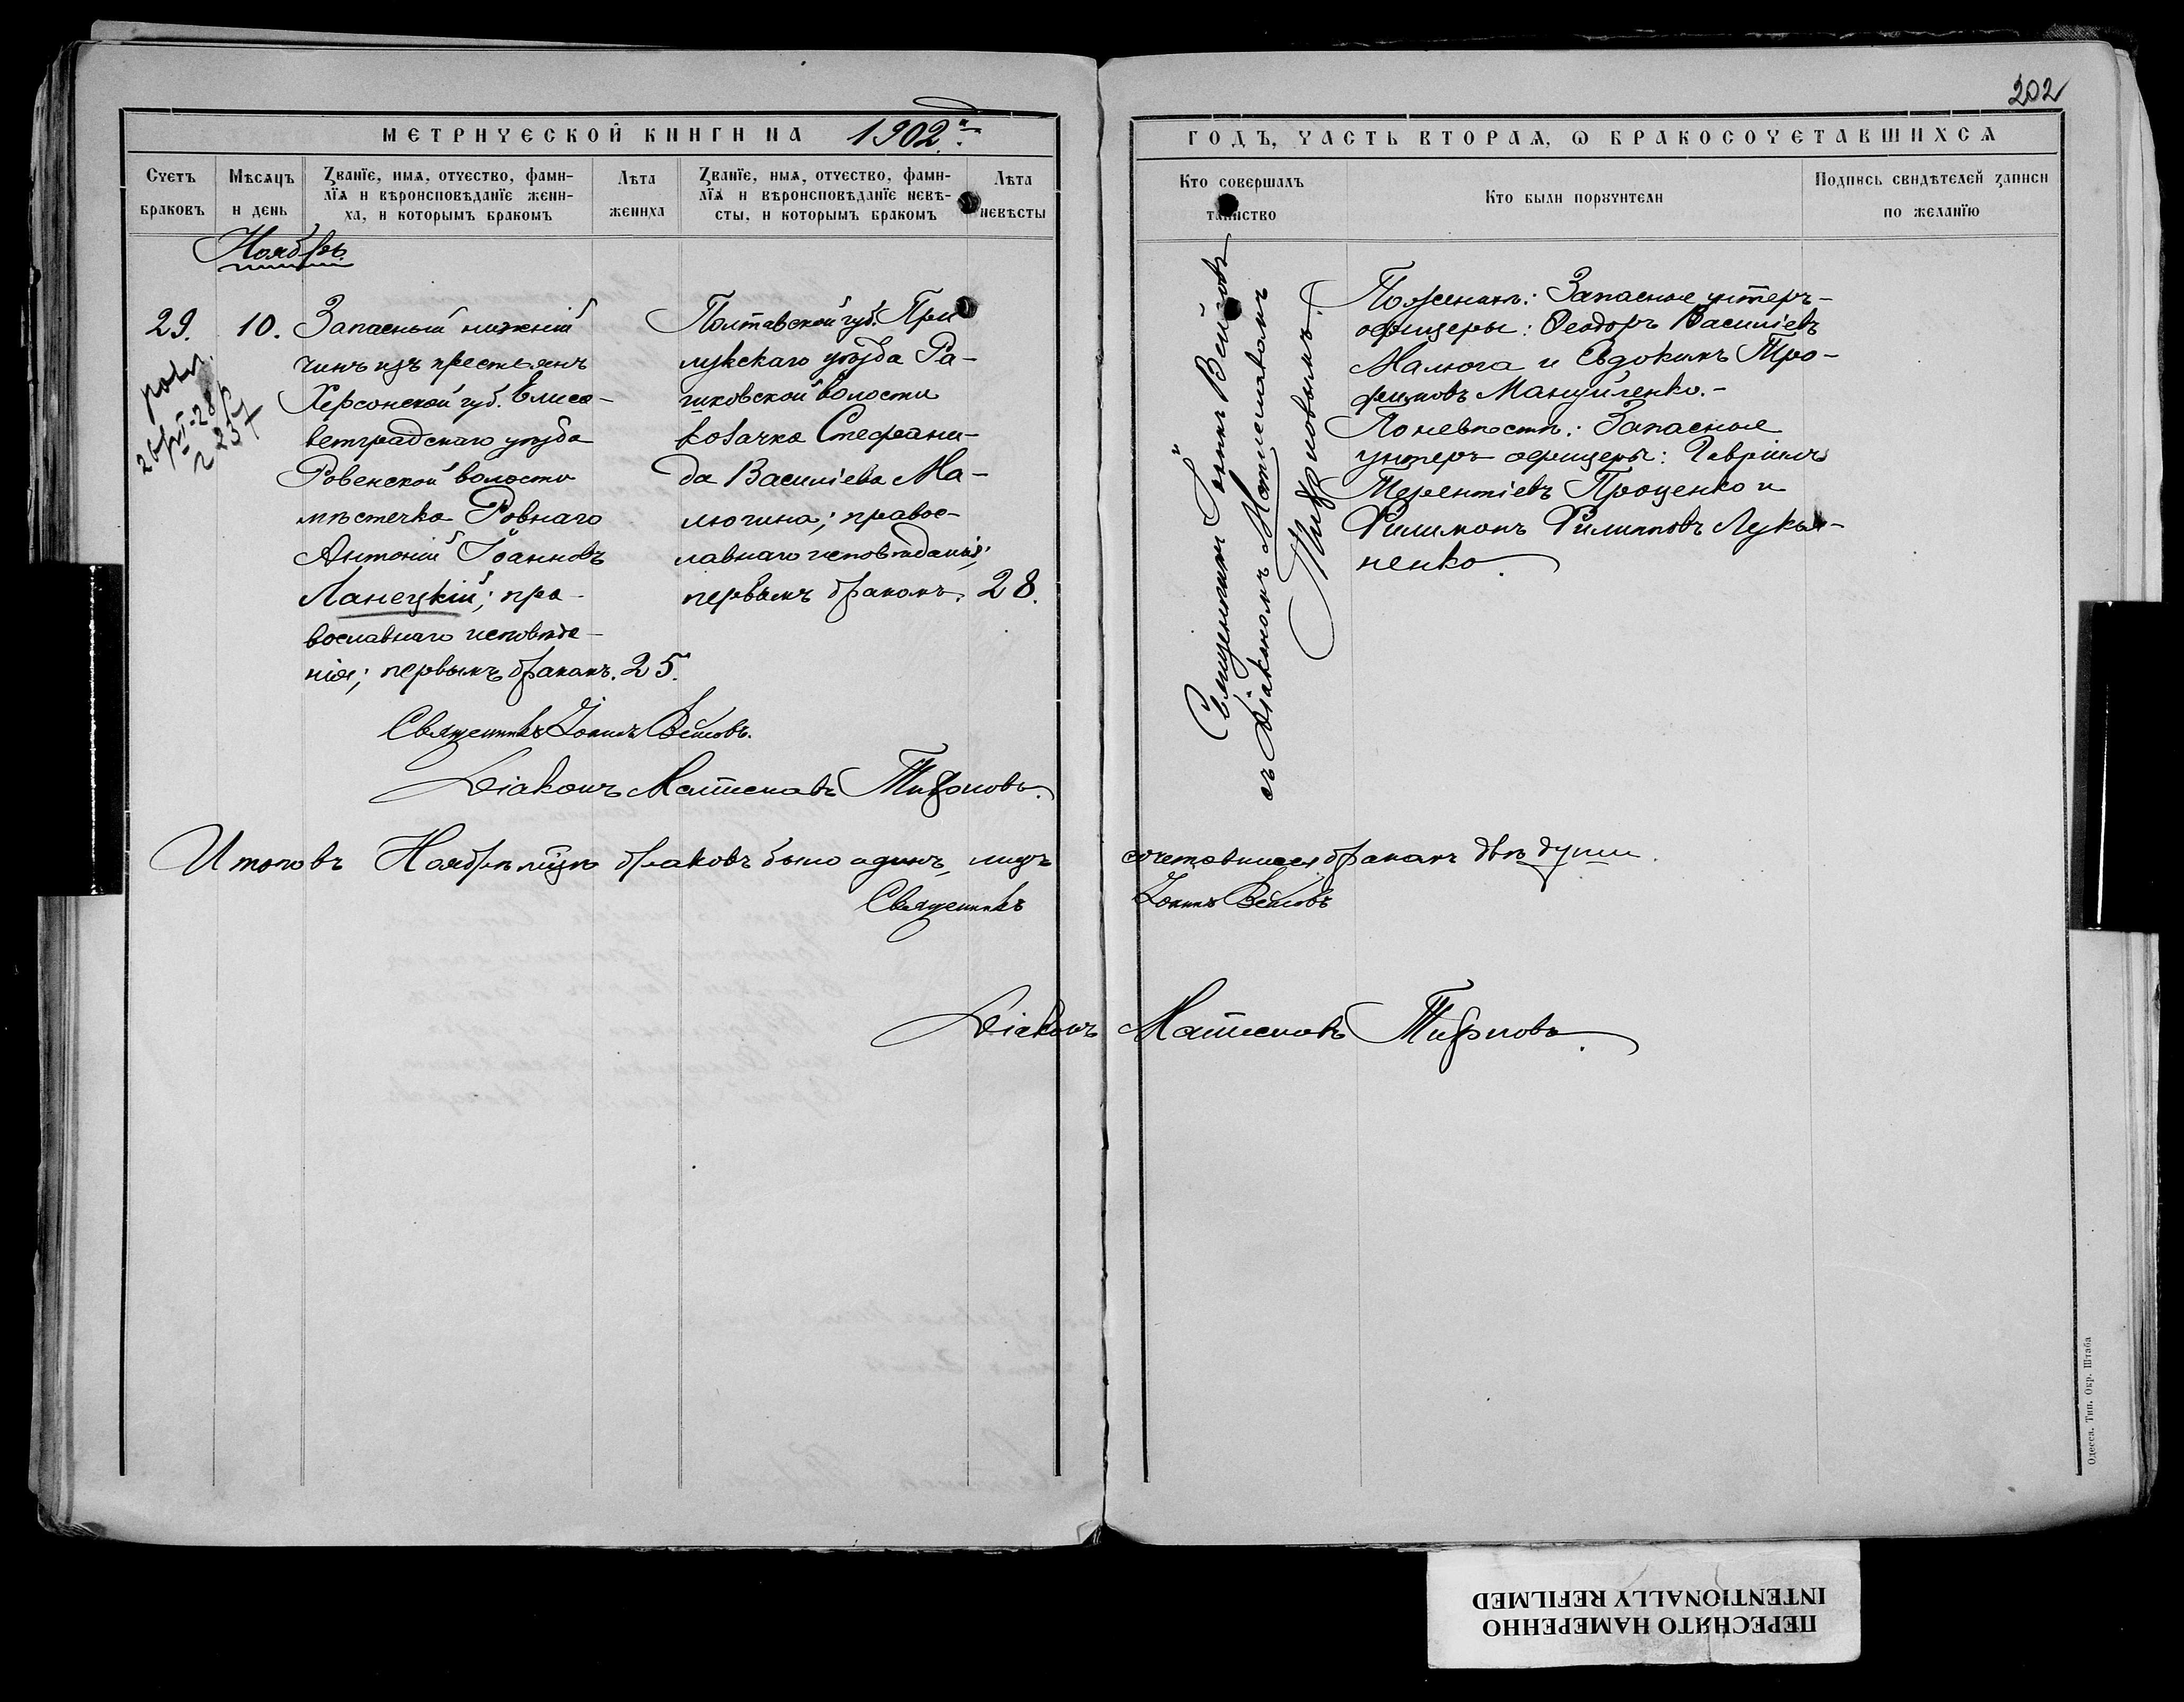 202
МЕТРИЧЕСКОЙ КНИГИ НА 1902й
ГОДЪ, ЧАСТЬ ВТОРАЯ, Ѡ БРАКОСОЧЕТАВШИХСЯ
Счетъ браковъ
Мѣсяцъ и день
Званїе, имя, отчество, фами-
лїя и вѣроисповѣданїе жени-
ха, и которымъ бракомъ
Лѣта жениха
Званїе, имя, отчество, фами-
лїя и вѣроисповѣданїе невѣ-
сты, и которымъ бракомъ
Лѣта невѣсты
Кто совершалъ таинство
Кто были порꙋчители
Подпись свидѣтелей записи
по желанїю
Ноябрь
29. 10.
Запасный нижній
чинъ изъ крестьянъ
Херсонской губ. Елиса-
ветградскаго уѣзда
Ровенской волости
мѣстечка Ровнаго
Антоній Іоанновъ
Ланецкій; пра-
вославнаго исповѣда-
нія; первымъ бракомъ. 25.
Полтавской губ. При
лукскаго уѣзда Ра-
шковской волости
козачка Стефани-
да Василіева Ма-
люгина; правос-
лавнаго исповѣданія;
первымъ бракомъ. 28.
Священникъ Іоаннъ Вейсовъ
съ Діакономъ Мстиславомъ
Тифровымъ.
По женихѣ: Запасные унтеръ-
офицеры: Ѳеодоръ Василіевъ
Малюга и Евдокимъ Тро-
фимовъ Мануйленко.-
По невѣстѣ: Запасные
унтеръ-офицеры: Гавріилъ
Терентіевъ Проценко и
Филимонъ Филипповъ Лукья-
ненко.
Священникъ Іоаннъ Вейсовъ.
Діаконъ Мстиславъ
Итого въ Ноябрѣ мцѣ браковъ было одинъ, лицъ сочетавшихся бракомъ двѣ души.
Священникъ Іоаннъ Вейсовъ
Діаконъ Мстиславъ
Одесса. Тип. Окр. Штаба
ПЕРЕСНЯТО НАМЕРЕННО
INTENTIONALLY REFILMED